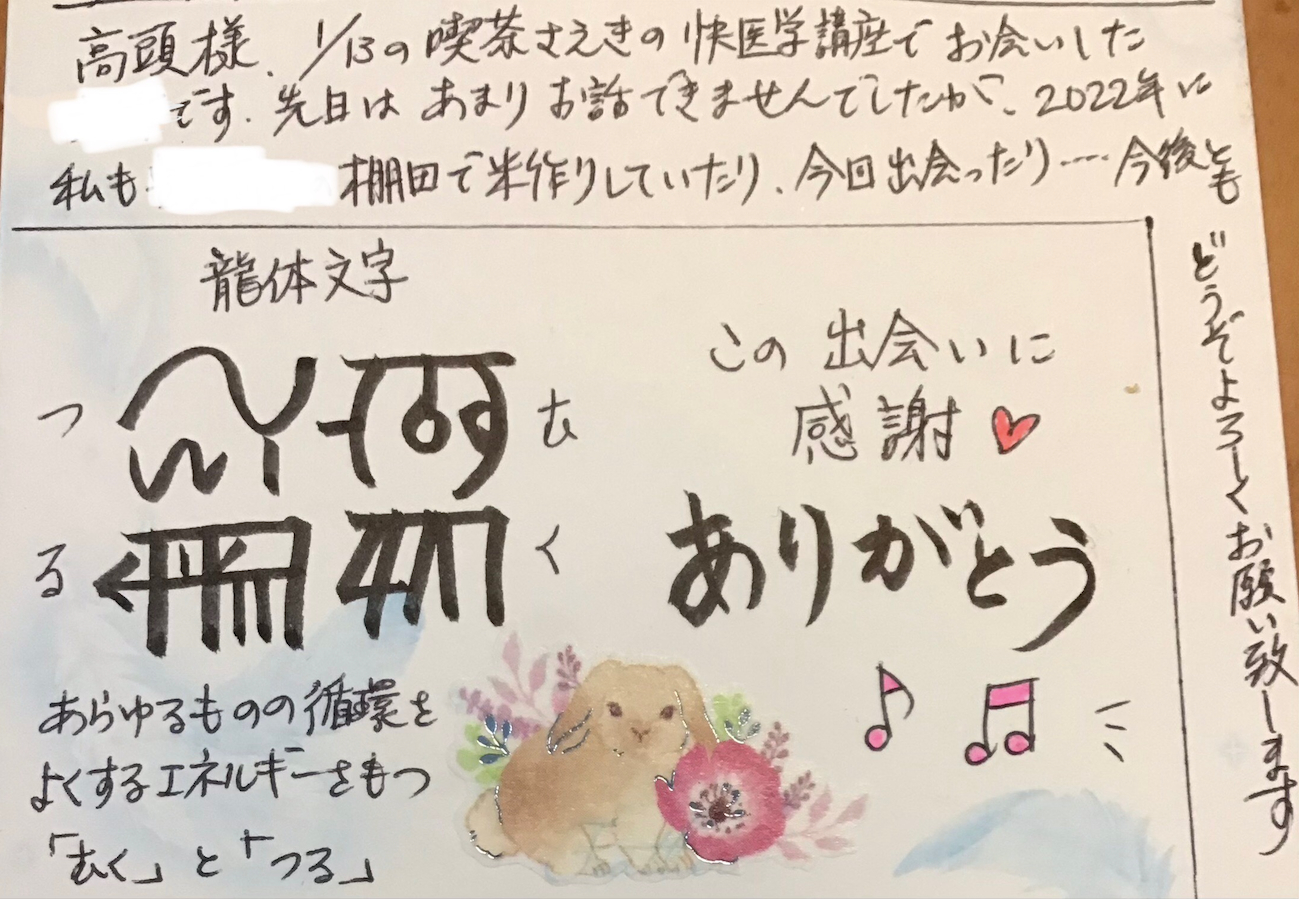 高頭様、1/13の喫茶さえきの快医学講座でお会いした
です。先日はあまりお話できませんでしたが、2022年に
私も 棚田で米作りしていたり、今回出会ったり‥‥今後とも
どうぞよろしくお願い致します
龍体文字
つ む
る く
あらゆるものの循環を
よくするエネルギーをもつ
「むく」と「つる」
この出会いに
感謝
ありがとう